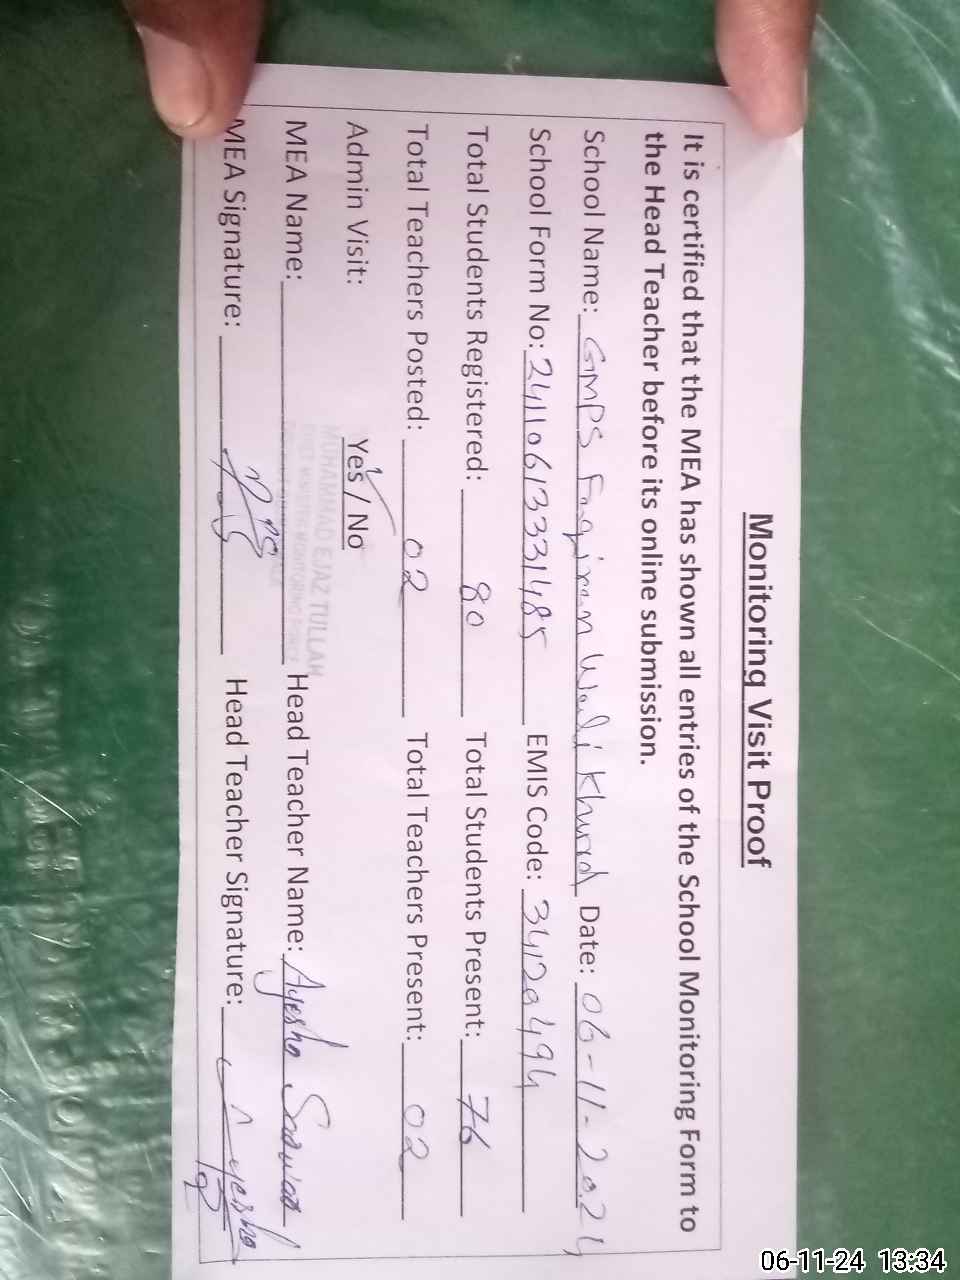 Monitoring Visit Proof
It is certified that the MEA has shown all entries of the School Monitoring Form to
the Head Teacher before its online submission.
School Name: GMPS Faqiran Wali Khurd Date: 06-11-2024
School Form No: 241106133331485 EMIS Code: 34120494
Total Students Registered: 80 Total Students Present: 76
Total Teachers Posted: 02 Total Teachers Present: 02
Admin Visit: Yes / No
MUHAMMAD EJAZ TULLAH
MEA Name: Head Teacher Name: Ayesha
MEA Signature: Head Teacher Signature: Ayesha
06-11-24 13:34